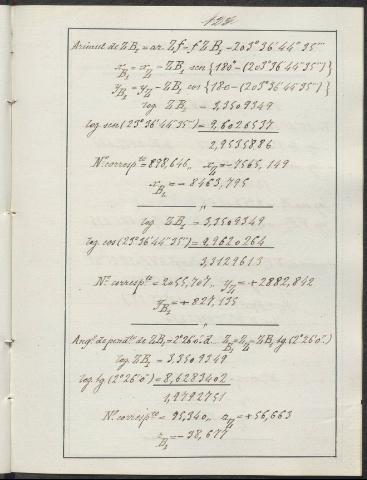 122
Azimut de ZB₁ = az Zf - f ZB₁ - 203° 36' 44" 35'''
x_B₁ = x_Z - ZB₁ sen {180° - (203° 36' 44" 35''')}
y_B₁ = y_Z - ZB₁ cos {180 - (203° 36' 44" 35''')}
log ZB₁ = 3,3509349
log sen (23° 36' 44" 35''') = 9,6026537
2,9535886
Nº corresp.te = 898,646,, x_Z = -7565,149
x_B₁ = -8463,795
"
log ZB₁ = 3,3509349
log cos (23° 36' 44" 35''') = 9,9620264
3,3129613
Nº corresp.te = 2055,707,, y_Z = +2882,842
y_B₁ = +827,135
"
Ang.º de pend.te de ZB₁ = 2° 26' 0" d... Z_B₁ = Z_Z - ZB₁ tg (2° 26' 0")
log ZB₁ = 3,3509349
log tg (2° 26' 0") = 8,6283402
1,9792751
Nº corresp.te = 95,340,, z_Z = +56,663
z_B₁ = -38,677